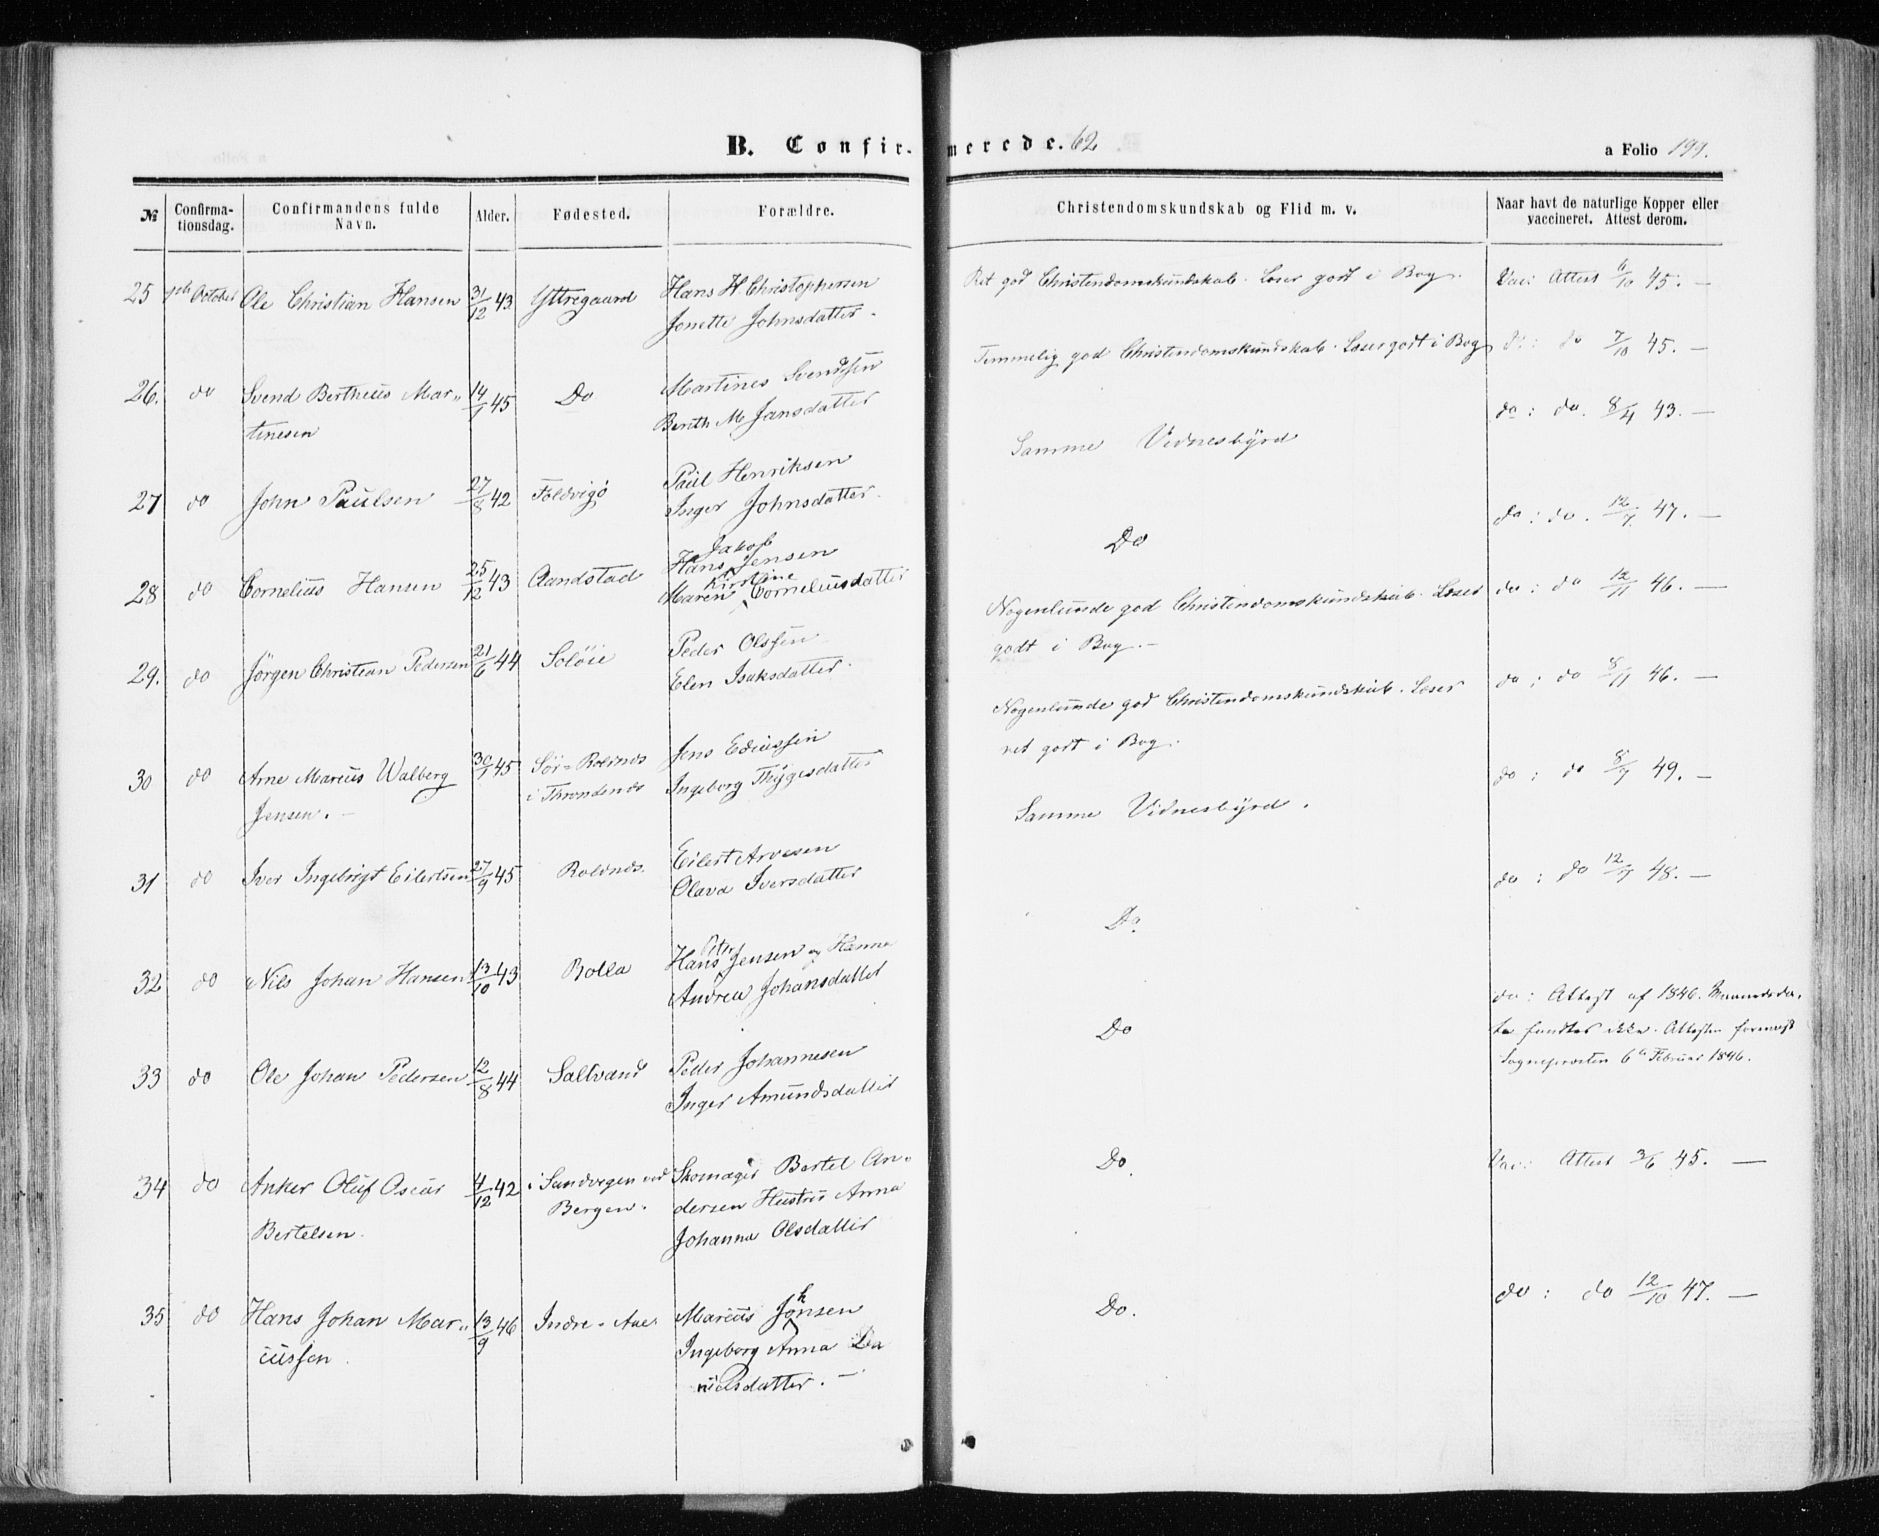 B. Confirmerede. 62
a Folio 199.
№ Confirma-tionsdag. Confirmandens fulde Navn. Alder. Fødested. Forældre. Christendomskundskab og Flid m. v. Naar havt de naturlige Kopper eller vaccineret. Attest derom.
25 October Ole Christian Hansen 31/12 43 Yttregaard Hans H Christophersen
Jonette Johnsdatter.
Ret god Christendomskundskab. Læser godt i Bog. Vac: Attest 6/10 45. —
26. do Svend Bertheus Mar„ 14/1 45 Do Martines Svendsen
tinesen Berith M Jansdatter
Temmelig god Christendomskundskab. Læser godt i Bog do: do 7/10 45. —
27 do John Paulsen 27/8 42 Foldvigø Paul Henriksen
Inger Johnsdatter.
Samme Vidnesbyrd do: do. 8/4 43. —
28 do Cornelius Hansen 25/12 43 Aandstad Hans Jakob Jensen
Maren Kirstine Corneliusdatter
Do do: do. 12/7 47. —
29. do Jørgen Christian Pedersen 21/6 44 Soløie Peder Olssen
Elen Isaksdatter.
Nogenlunde god Christendomskundskab. Læser do: do 12/11 46. —
godt i Bog. —
30 do Arne Marius Walberg 30/1 45 Sør-Roldnes Jens Ediassen
Jensen. — i Throndenes Ingeborg Thygesdatter
Nogenlunde god Christendomskundskab. Læser do: do 8/11 46. —
ret godt i Bog.
31 do Iver Ingebrigt Eilertsen 27/9 45 Roldnes. Eilert Arvesen
Olava Iversdatter
Samme Vidnesbyrd. do: do 8/7 49. —
32 do Nils Johan Hansen 13/10 43 Rolla Hans Peter Jensen og Hanna
Andrea Johansdatter
Do. do: do 12/7 48. —
33 do Ole Johan Pedersen 12/8 44 Saltvand Peder Johannesen
Inger Amundsdatter
Do do: Attest af 1846. Maanedsda-
ta fandtes ikke. Attesten forevist
Sognepresten 6te Februar 1846.
34 do Anker Oluf Oscar 4/12 42 i Sandvigen ved Skomager Bertel An-
Bertelsen. Bergen. dersen Hustru Anna
Johanna Olsdatter
Do. Vac: Attest 3/6 45. —
35 do Hans Johan Mar„ 13/9 46 Indre-Aae Marius Johnsen
iussen. Ingeborg Anna Da
nielsdatter. —
Do. do: do 12/10 47. —